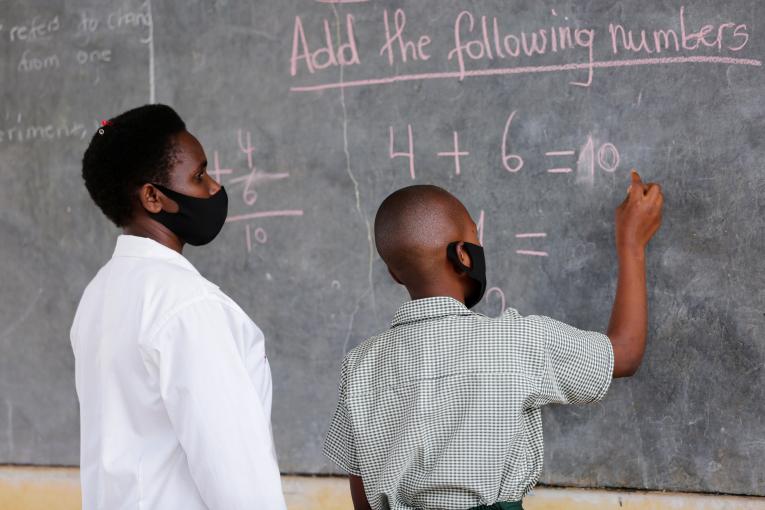 refers to chang
from one
Add the following numbers
+ 4
6
10
4 + 6 = 10
=